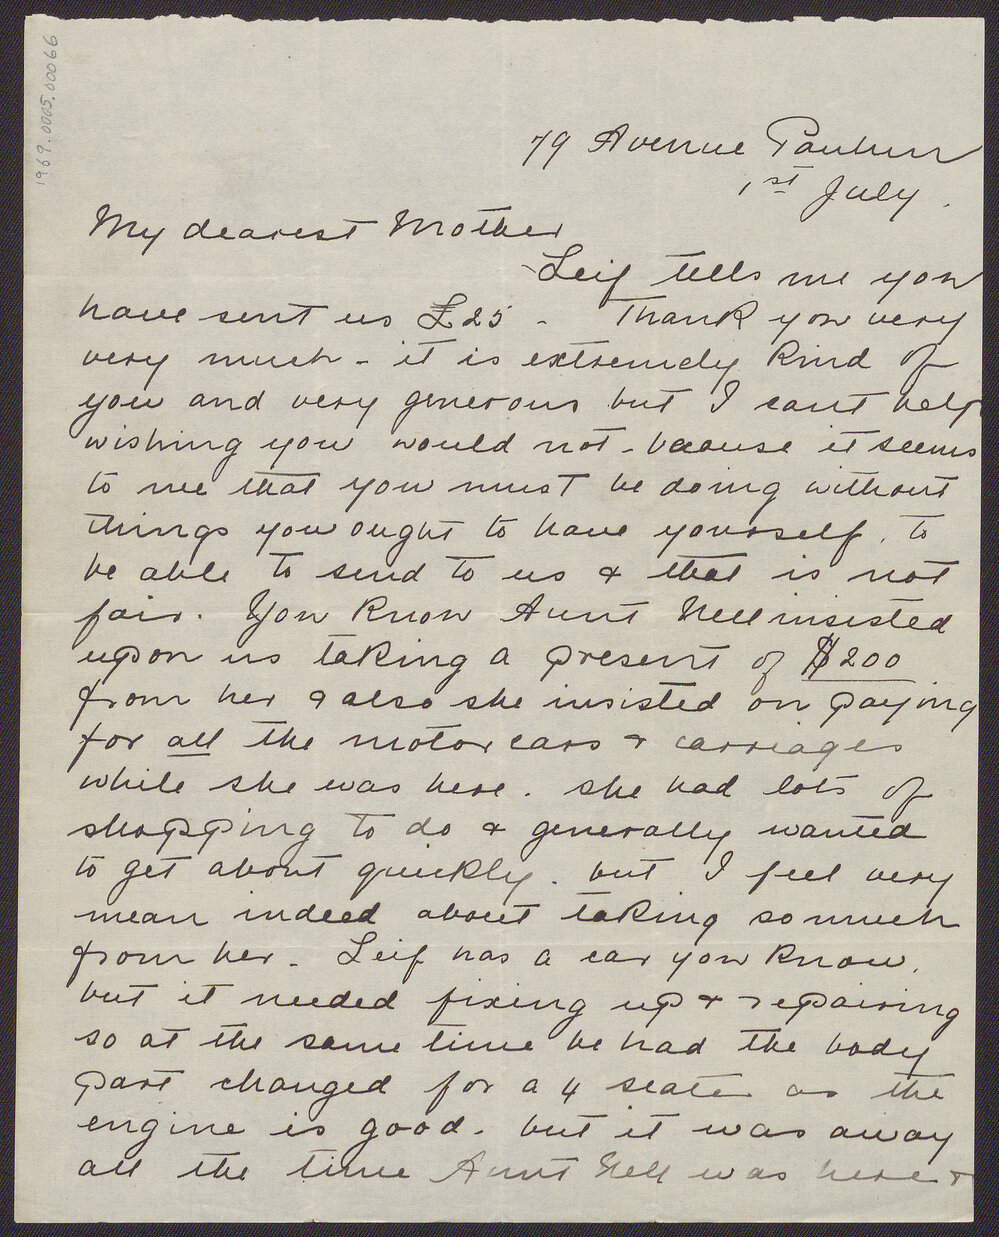 1969.0005.00066
79 Avenue Paulun
1st July.
My dearest Mother
Leif tells me you
have sent us £25 - Thank you very
very much - it is extremely kind of
you and very generous but I cant help
wishing you would not - because it seems
to me that you must be doing without
things you ought to have yourself, to
be able to send to us & that is not
fair. You know Aunt Nell insisted
upon us taking a present of $200
from her & also she insisted on paying
for all the motor cars & carriages
while she was here. she had lots of
shopping to do & generally wanted
to get about quickly. but I feel very
mean indeed about taking so much
from her - Leif has a car you know,
but it needed fixing up & repairing
so at the same time he had the body
part changed for a 4 seater as the
engine is good. but it was away
all the time Aunt Nell was here &